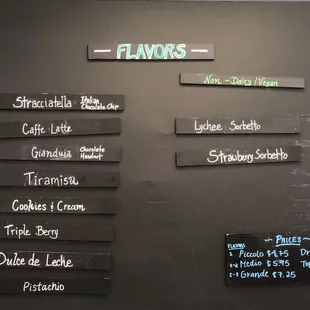 FLAVORS
Non - Dairy / Vegan
Stracciatella Italian Chocolate Chip
Caffe Latte
Gianduia Chocolate Hazelnut
Tiramisu
Cookies & Cream
Triple Berry
Dulce de Leche
Pistachio
Lychee Sorbetto
Strawberry Sorbetto
FLAVORS - PRICES -
1 Piccolo $4.75
Medio $5.95
2-3 Grande $7.25